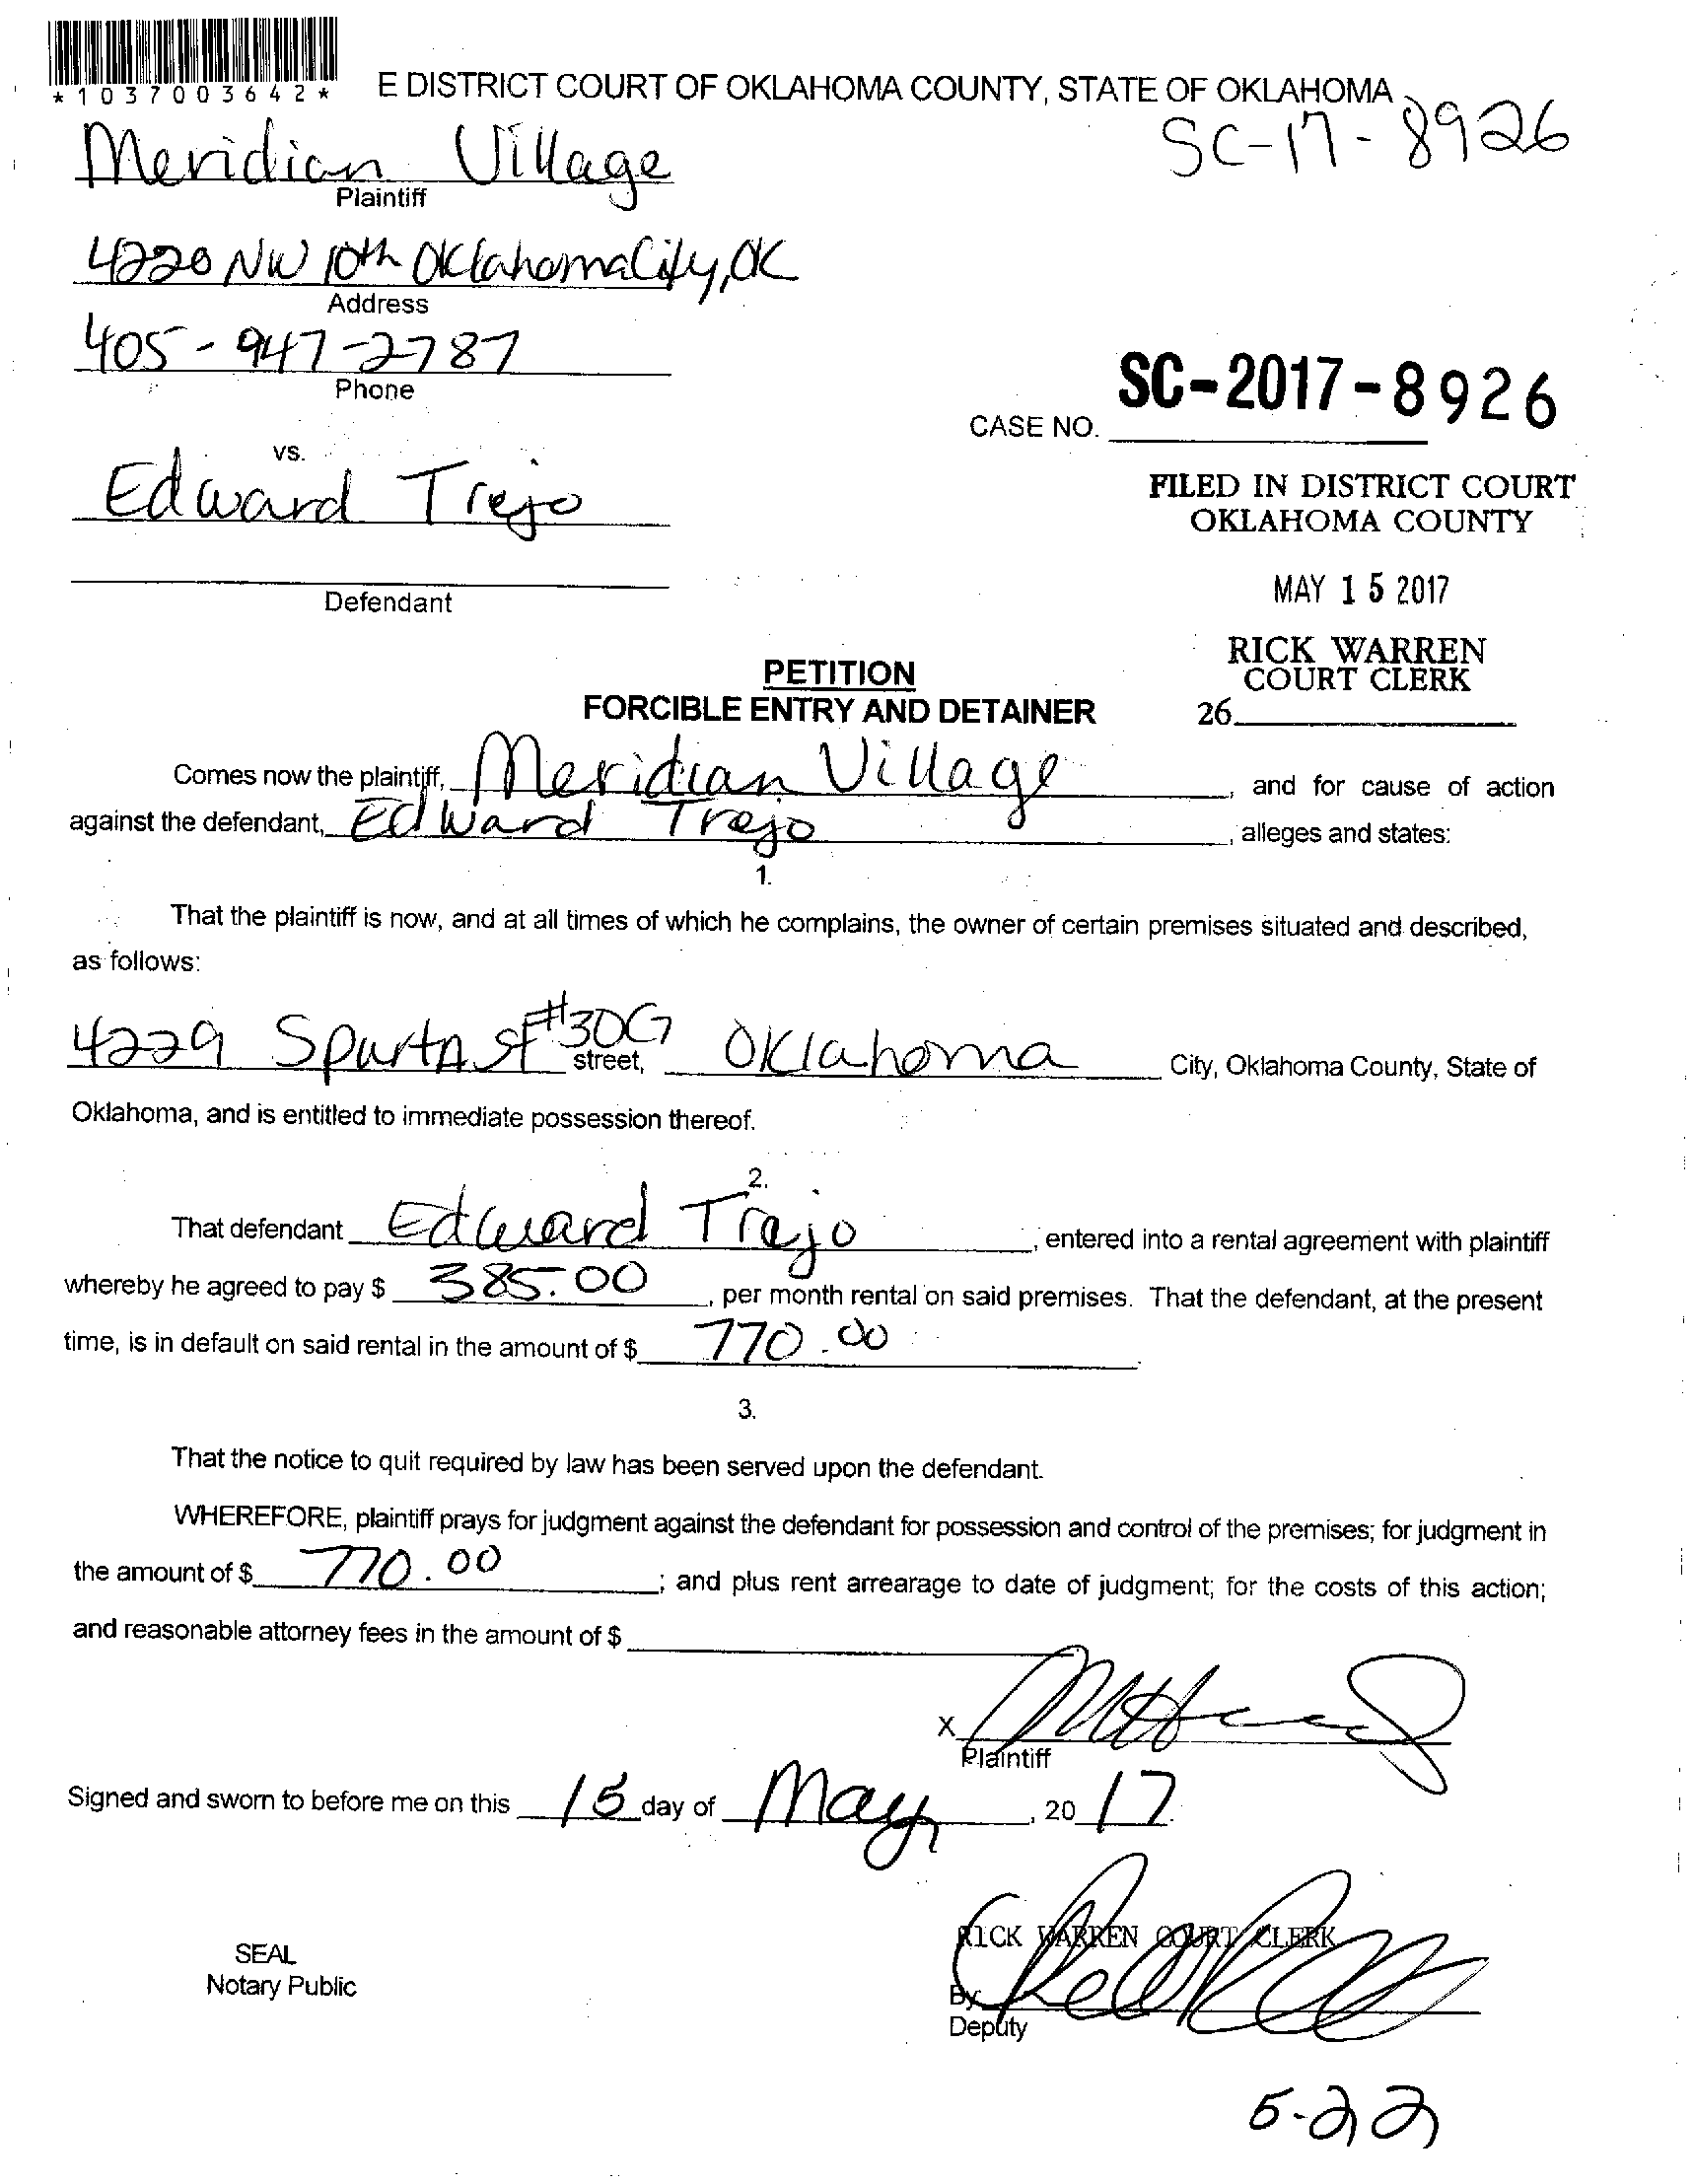 *1037003642*
E DISTRICT COURT OF OKLAHOMA COUNTY, STATE OF OKLAHOMA
SC-17-8926
Meridian Village
Plaintiff
4220 NW 10th Oklahoma City, OK
Address
405-947-2787
Phone
CASE NO. SC-2017-8926
vs.
Edward Trejo
Defendant
FILED IN DISTRICT COURT
OKLAHOMA COUNTY
MAY 15 2017
RICK WARREN
COURT CLERK
26
PETITION
FORCIBLE ENTRY AND DETAINER
Comes now the plaintiff, Meridian Village, and for cause of action
against the defendant, Edward Trejo, alleges and states:
1.
That the plaintiff is now, and at all times of which he complains, the owner of certain premises situated and described,
as follows:
4229 Sparta St #30G street, Oklahoma City, Oklahoma County, State of
Oklahoma, and is entitled to immediate possession thereof.
2.
That defendant Edward Trejo, entered into a rental agreement with plaintiff
whereby he agreed to pay $ 385.00, per month rental on said premises. That the defendant, at the present
time, is in default on said rental in the amount of $ 770.00.
3.
That the notice to quit required by law has been served upon the defendant.
WHEREFORE, plaintiff prays for judgment against the defendant for possession and control of the premises; for judgment in
the amount of $ 770.00; and plus rent arrearage to date of judgment; for the costs of this action;
and reasonable attorney fees in the amount of $
X
Plaintiff
Signed and sworn to before me on this 15 day of May, 2017.
RICK WARREN COURT CLERK
SEAL
Notary Public
By
Deputy
5-22